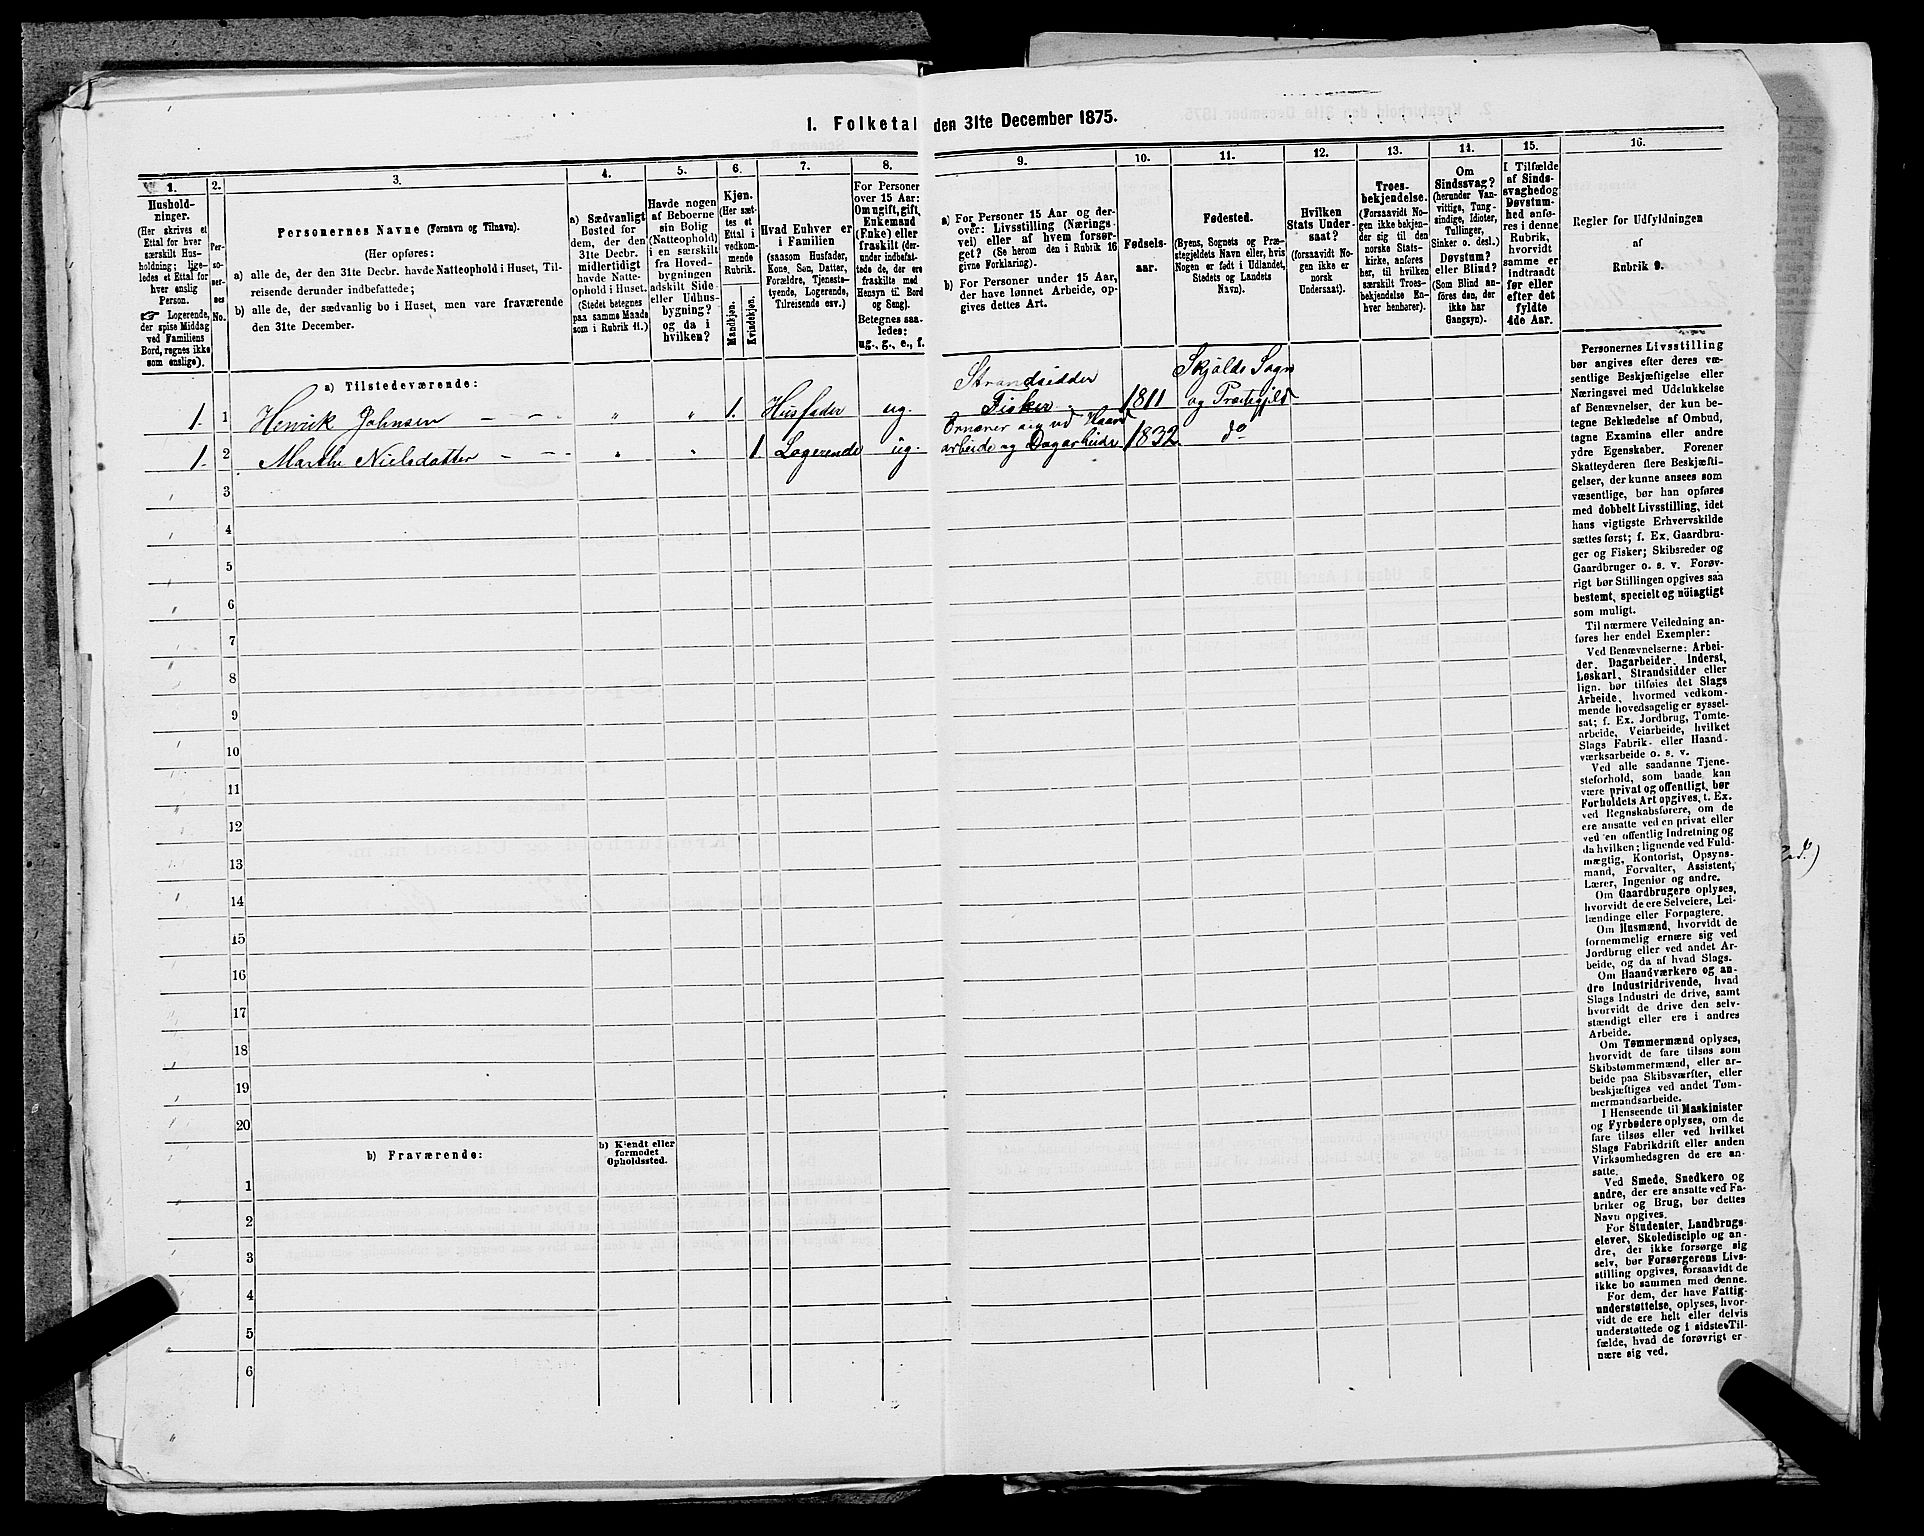 1. Folketal den 31te December 1875.
1.
2.
3.
4.
5.
6.
7.
8.
9.
10.
11.
12.
13.
14.
15.
16.
Hushold-
ninger.
(Her skrives et
Ettal for hver
særskilt Hus-
holdning; lige-
ledes et Ettal for
hver enslig
Person.
☞ Logerende,
der spise Middag
ved Familiens
Bord, regnes ikke
som enslige).
Per-
so-
ner-
nes
No.
Personernes Navne (Fornavn og Tilnavn).
(Her opføres:
a) alle de, der den 31te Decbr. havde Natteophold i Huset, Til-
reisende derunder indbefattede;
b) alle de, der sædvanlig bo i Huset, men vare fraværende
den 31te December.
a) Sædvanligt
Bosted for
dem, der den
31te Decbr.
midlertidigt
havde Natte-
ophold i Huset.
(Stedet betegnes
paa samme Maade
som i Rubrik 11.)
Havde nogen
af Beboerne
sin Bolig
(Natteophold)
i en særskilt
fra Hoved-
bygningen
adskilt Side-
eller Udhus-
bygning?
og da i
hvilken?
Kjøn.
(Her sæt-
tes et
Ettal i
vedkom-
mende
Rubrik.
Mandkjøn.
Kvindekjøn.
Hvad Enhver er
i Familien
(saasom Husfader,
Kone, Søn, Datter,
Forældre, Tjenests-
tyende, Logerende,
Tilreisende osv.)
For Personer
over 15 Aar:
Om ugift, gift,
Enkemand
(Enke) eller
fraskilt (der-
under indbefat-
tede de, der ere
fraskilte med
Hensyn til Bord
og Seng).
Betegnes saa-
ledes:
ug., g., e., f.
a) For Personer 15 Aar og der-
over: Livsstilling (Nærings-
vei) eller af hvem forsør-
get? (Se herom den i Rubrik 16
givne Forklaring).
b) For Personer under 15 Aar,
der have lønnet Arbeide, op-
gives dettes Art.
Fødsels-
aar.
Fødested.
(Byens, Sognets og Præ-
stegjeldets Navn eller, hvis
Nogen er født i Udlandet,
Stedets og Landets
Navn).
Hvilken
Stats Under-
saat?
(forsaavidt No-
gen ikke er
norsk
Undersaat).
Troes-
bekjendelse.
(Forsaavidt No-
gen ikke bekjen-
der sig til den
norske Stats-
kirke, anføres
her, til hvilken
særskilt Troes-
bekjendelse En-
hver henhører).
Om
Sindssvag?
(herunder Van-
vittige, Tung-
sindige, Idioter,
Tullinger,
Sinker o. desl.)
Døvstum?
eller Blind?
(Som Blind an-
føres den, der
ikke har
Gangsyn).
I Tilfælde
af Sinds-
svaghed og
Døvstum-
hed anfø-
res i denne
Rubrik,
hvorvidt
samme er
indtraadt
før eller
efter det
fyldte
4de Aar.
Regler for Udfyldningen
af
Rubrik 9.
a) Tilstedeværende:
1. 1 Henrik Johnsen — — — „ „ 1. Husfader ug. Strandsidder
Fisker. 1811 Skjolds Sogn
og Præstegjeld
1. 2 Marthe Nielsdatter — — — „ „ 1. Logerende ug. Ernærer sig ved Haand
arbeide og Dagarbeide 1832. do
3
4
5
6
7
8
9
10
11
12
13
14
15
16
17
18
19
20
b) Fraværende:
b) Kjendt eller
formodet
Opholdssted.
1
2
3
4
5
6
Personernes Livsstilling
bør angives efter deres væ-
sentlige Beskjæftigelse eller
Næringsvei med Udelukkelse
af Benævnelser, der kun be-
tegne Beklædelse af Ombud,
tagne Examina eller andre
ydre Egenskaber. Forener
Skatteyderen flere Beskjæfti-
gelser, der kunne ansees som
væsentlige, bør han opføres
med dobbelt Livsstilling, idet
hans vigtigste Erhvervskilde
sættes først; f. Ex. Gaardbru-
ger og Fisker; Skibsreder og
Gaardbruger o. s. v. Forøv-
rigt bør Stillingen opgives saa
bestemt, specielt og nöiagtigt
som muligt.
Til nærmere Veiledning an-
føres her endel Exempler:
Ved Benævnelserne: Arbei-
der, Dagarbeider, Inderst,
Løskarl, Strandsidder eller
lign. bør tilføies det Slags
Arbeide, hvormed vedkom-
mende hovedsagelig er syssel-
sat; f. Ex. Jordbrug, Tomte-
arbeide, Veiarbeide, hvilket
Slags Fabrik- eller Haand-
værksarbeide o. s. v.
Ved alle saadanne Tjene-
steforhold, som baade kan
være privat og offentligt, bør
Forholdets Art opgives, t. Ex.
ved Regnskabsførere, om de
ere ansatte ved en privat eller
ved en offentlig Indretning og
da hvilken; lignende ved Fuld-
mægtig, Kontorist, Opsyns-
mand, Forvalter, Assistent,
Lærer, Ingeniør og andre.
Om Gaardbrugere oplyses,
hvorvidt de ere Selveiere, Lei-
lændinge eller Forpagtere.
Om Husmænd, hvorvidt de
fornemmelig ernære sig ved
Jordbrug eller ved andet Ar-
beide, og da af hvad Slags.
Om Haandværkere og an-
dre Industridrivende, hvad
Slags Industri de drive, samt
hvorvidt de drive den selv-
stændigt eller ere i andres
Arbeide.
Om Tømmermænd oplyses,
hvorvidt de fare tilsøs som
Skibstømmermænd, eller ar-
beide paa Skibsværfter, eller
beskjæftiges ved andet Tøm-
mermandsarbeide.
I Henseende til Maskinister
og Fyrbødere oplyses, om de
fare tilsøs eller ved hvilket
Slags Fabrikdrift eller anden
Virksomhedsgren de ere an-
satte.
Ved Smede, Snedkere og
andre, der ere ansatte ved Fa-
briker og Brug, bør dettes
Navn opgives.
For Studenter, Landbrugs-
elever, Skoledisciple og an-
dre, der ikke forsørge sig
selv, bør Forsørgerens Livs-
stilling opgives, forsaavidt de
ikke bo sammen med denne.
For dem, der have Fattig-
understøttelse, oplyses, hvor-
vidt de ere helt eller delvis
understøttede og i sidste Til-
fælde, hvad de forøvrigt er-
nære sig ved.